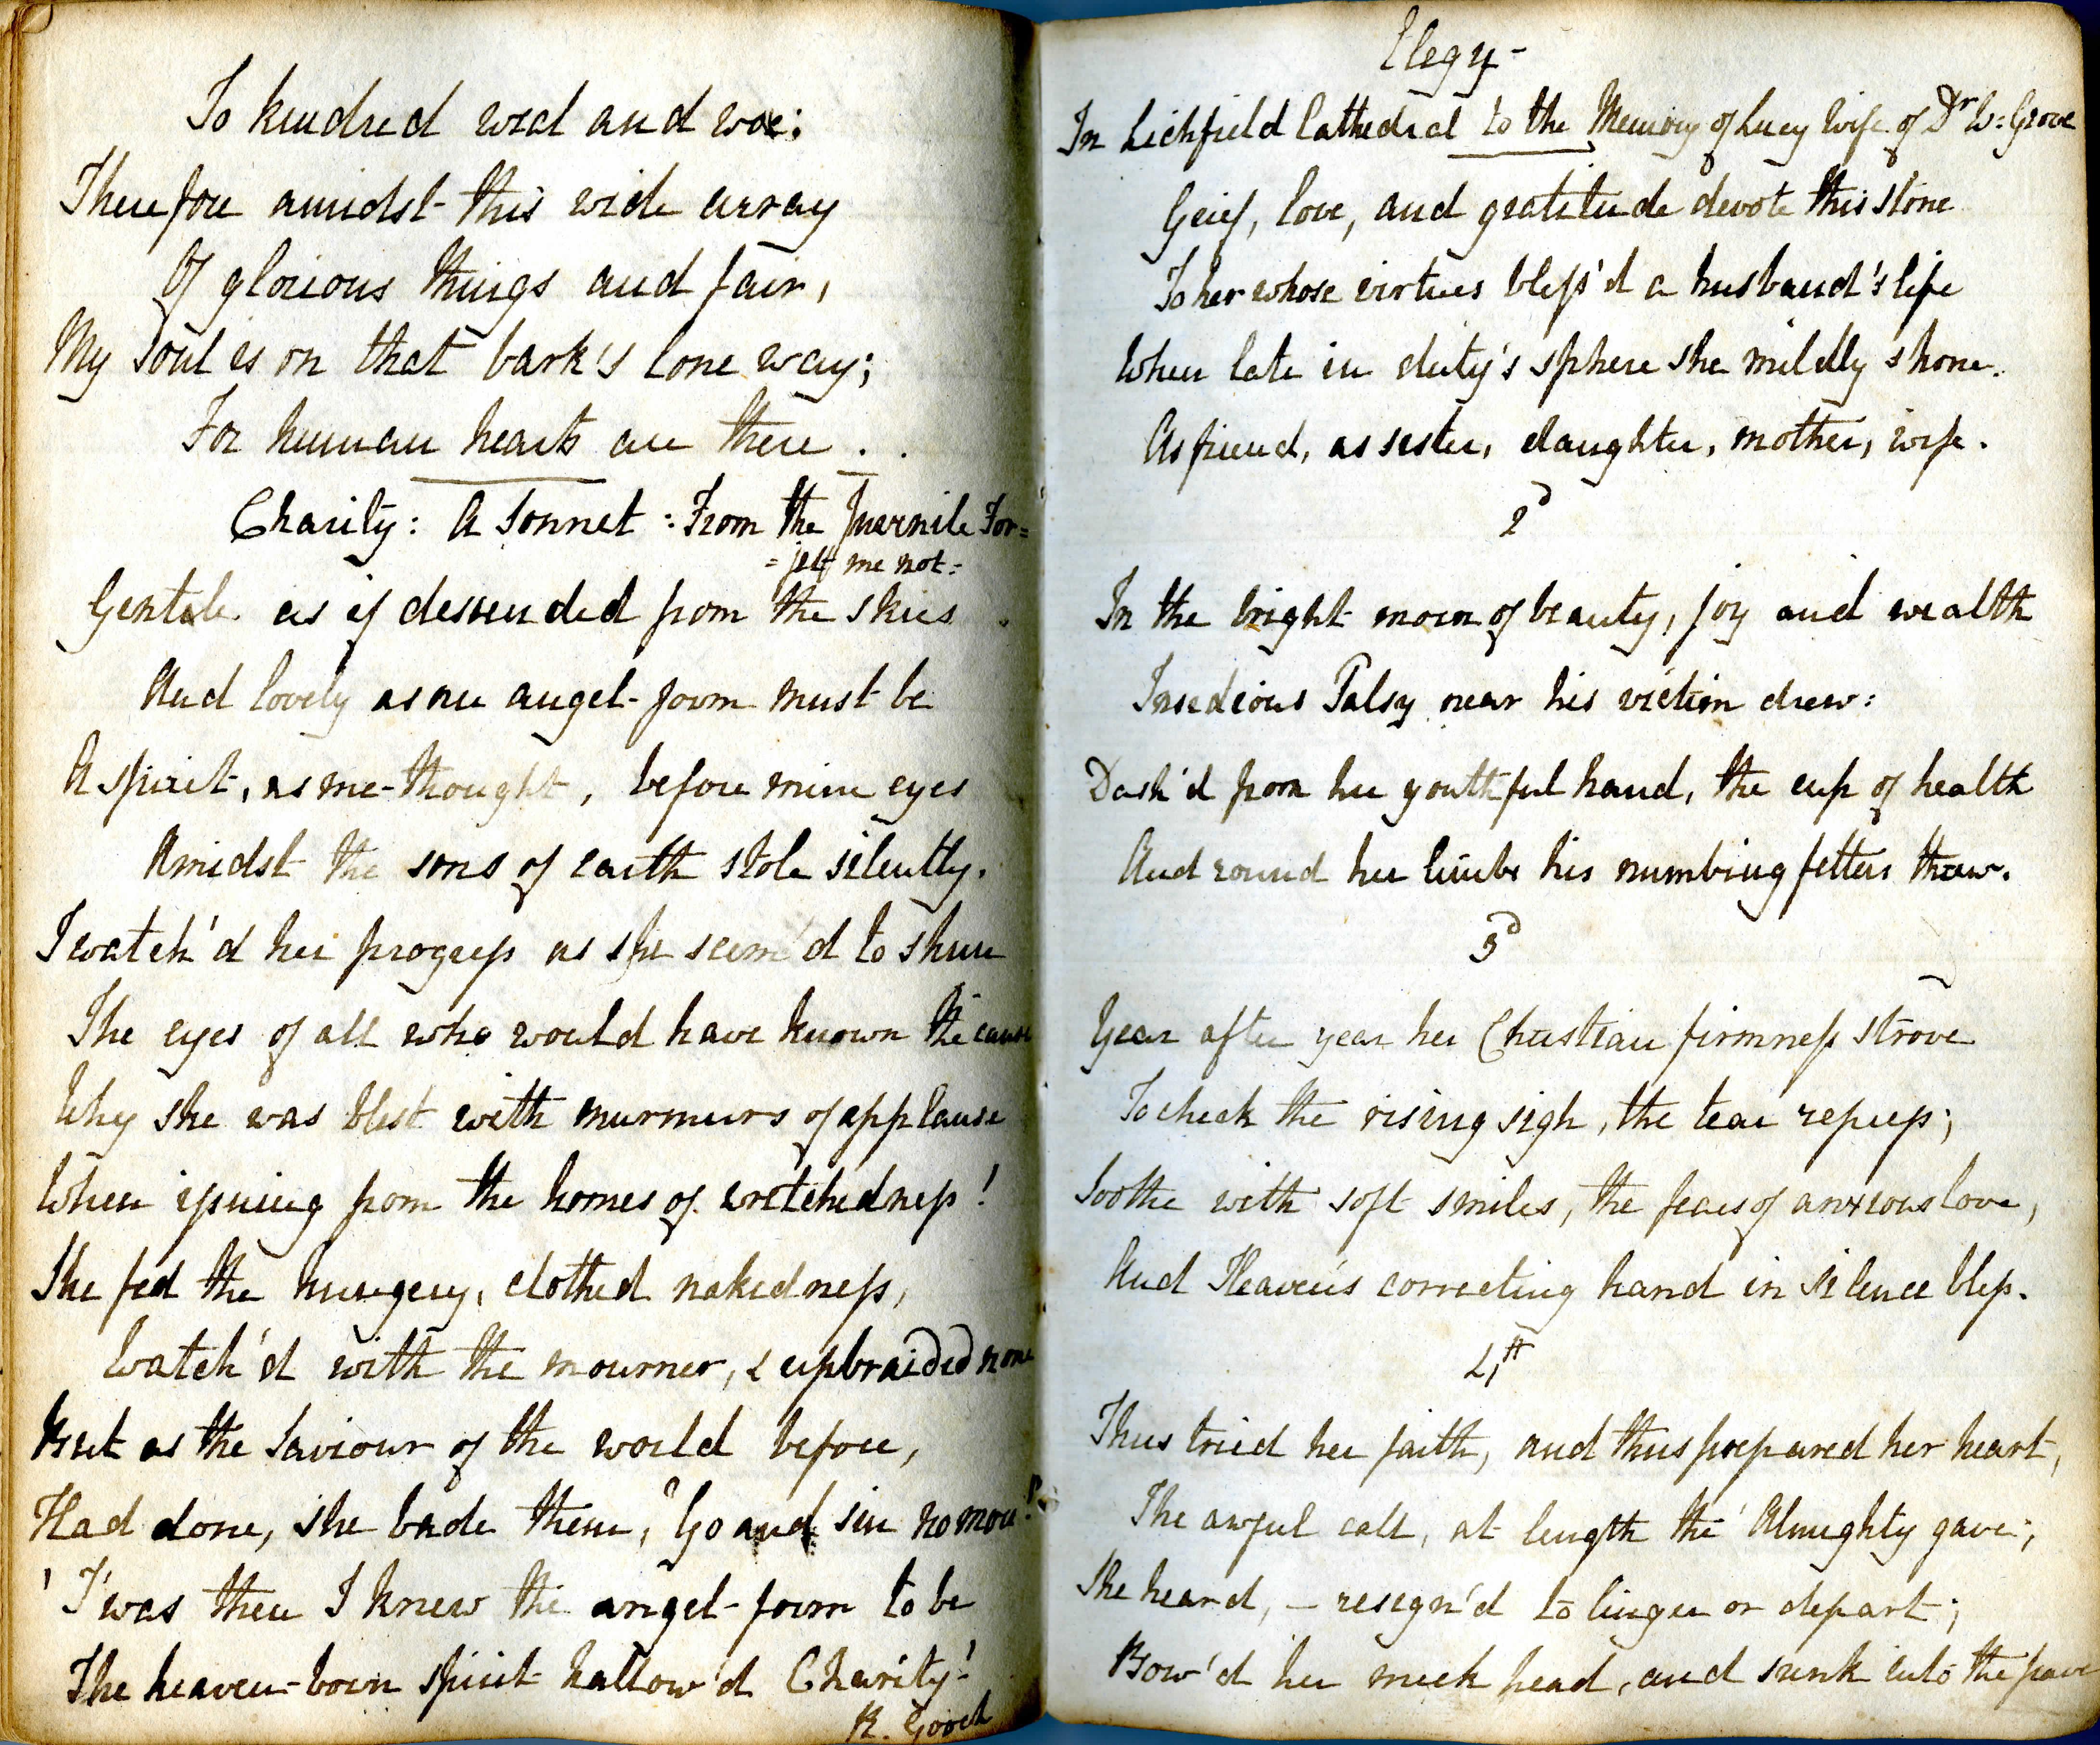 To kindred weal and woe:
Therefore amidst this wide array
Of glorious things and fair,
My soul is on that bark's lone way;
For human hearts are there . .
Charity: A Sonnet: From the Juvenile For=
=jett me not=
Gentale as if dessended from the skies
And lovely as an angel-form must be
A spirit, as me-thought, before mine eyes
Amidst the sons of earth stole silently.
I watch'd her progress as she seem'd to shun
The eyes of all who would have known the cause
Why she was blest with murmurs of applause
When issuing from the homes of wretchedness!
She fed the hungery, clothed nakedness,
Watch'd with the mourner, & upbraided none
But as the Saviour of the world before,
Had done, she bade them, "Go and sin no more!"
'T'was then I knew the angel-form to be
The heaven-born spirit hallow'd Charity!
R. Gooch
Elegy-
In Lichfield Cathedral to the Memory of Lucy Wife of Dr W: Grove
Grief, love, and gratitude devote this stone
To her whose virtues bless'd a husband's life
When late in duty's sphere she mildly shone.
As friend, as sister, daughter, mother, wife.
2d
In the bright morn of beauty, joy and wealth
Insedious Palsy near his victim drew:
Dash'd from her youthful hand, the cup of health
And round her limbs his numbing fetters threw.
3d
Year after year her Christian firmness strove
To check the rising sigh, the tear repress;
Soothe with soft smiles, the fears of anxious love,
And Heaven's correcting hand in silence bless.
4th
Thus tried her faith, and thus prepared her heart,
The awful call, at length the Almighty gave;
She heard, — resign'd to linger or depart;
Bow'd her meek head, and sunk into the grave